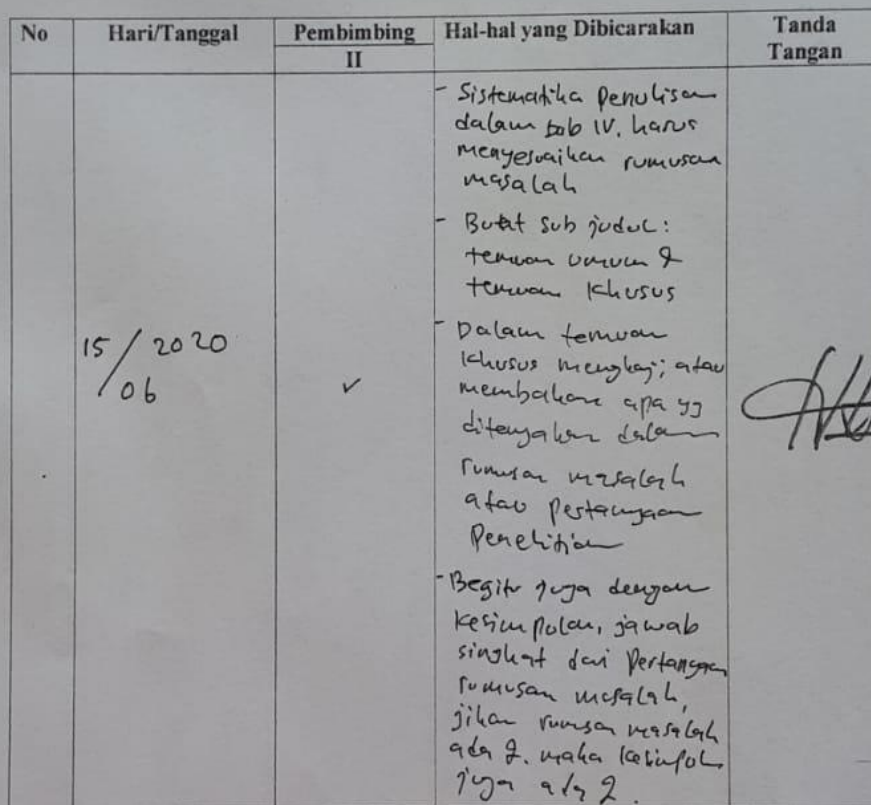 No Hari/Tanggal Pembimbing Hal-hal yang Dibicarakan Tanda
II Tangan
- Sistematika Penulisan
dalam bab IV. harus
menyesuaikan rumusan
masalah
- Buat Sub judul:
temuan umum &
temuan Khusus
- Dalam temuan
Khusus mengkaji; atau
membahas apa yg
ditanyakan dalam
rumusan masalah
atau Pertanyaan
Penelitian
15/06 2020
✓
- Begitu juga dengan
Kesimpulan, jawab
singkat dari Pertanyaan
rumusan masalah,
jika rumusan masalah
ada 2. maka Kesimpulan
juga ada 2.